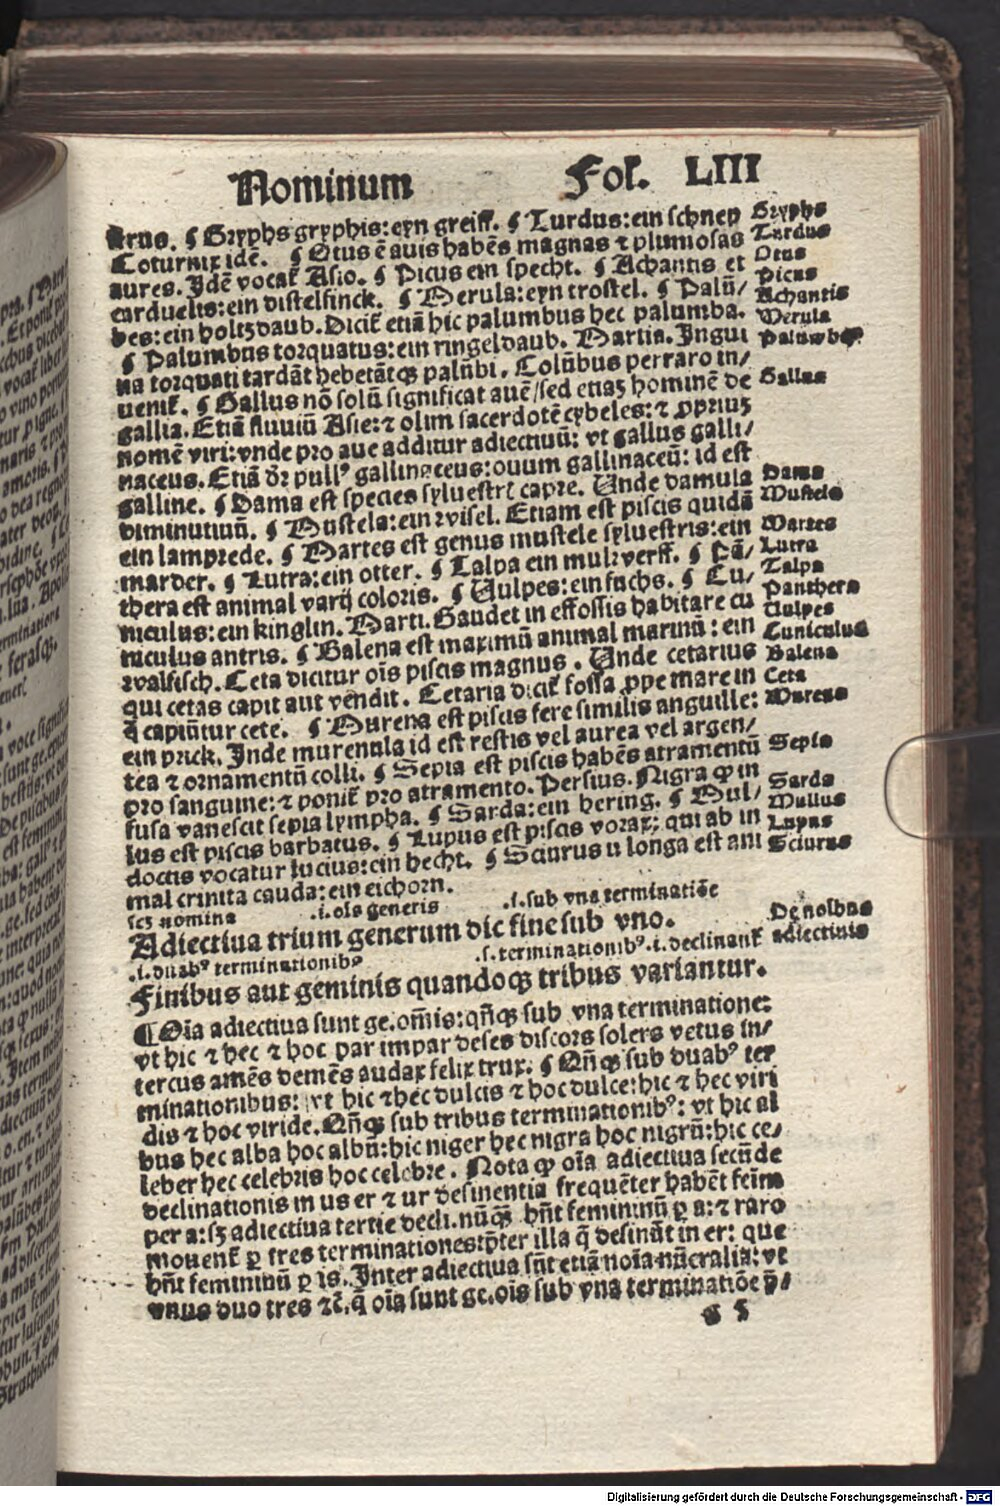 Nominum Fol. LIII
krus. ¶ Gryphs gryphis: eyn greiff. ¶ Turdus: ein schnep
Coturnix idē. ¶ Otus ē auis habēs magnas ⁊ plumosas
aures. Idē vocat᷑ Asio. ¶ Picus ein specht. ¶ Achantis et
carduelis: ein distelfinck. ¶ Merula: eyn trostel. ¶ Palū/
bes: ein holtzdaub. Dicit᷑ etiā hic palumbus hec palumba.
¶ Palumbus torquatus: ein ringeldaub. Martia. Ingui
na torquati tardāt hebetātq̄ꝫ palūbi. Colūbus perraro in/
uenit᷑. ¶ Gallus nō solū significat auē/sed etiaꝫ hominē de
gallia. Etiā fluuiū Asie: ⁊ olim sacerdotē cybeles: ⁊ ꝓpriuꝫ
nomē viri: vnde pro aue additur adiectiuū: vt gallus galli/
naceus. Etiā dr̄ pullꝰ gallinaceus: ouum gallinaceū: id est
galline. ¶ Dama est species syluestris capre. Unde damula
diminutiuū. ¶ Mustela: ein wisel. Etiam est piscis quidā
ein lamprede. ¶ Martes est genus mustele syluestris: ein
marder. ¶ Lutra: ein otter. ¶ Talpa ein mulwerff. ¶ Pā/
thera est animal varij coloris. ¶ Vulpes: ein fuchs. ¶ Cu/
niculus: ein kinglin. Marti. Gaudet in effossis habitare cu
niculus antris. ¶ Balena est maximū animal marinū: ein
walfisch. Ceta dicitur oīs piscis magnus. Unde cetarius
qui cetas capit aut vendit. Cetaria dicit᷑ fossa ꝓpe mare in
q̄ capiūtur cete. ¶ Murena est piscis fere similis anguille:
ein prick. Inde murenula id est restis vel aurea vel argen/
tea ⁊ ornamentū colli. ¶ Sepia est piscis habēs atramentū
pro sanguine: ⁊ ponit᷑ pro atramento. Persius. Nigra ꝙ in
fusa vanescit sepia lympha. ¶ Sarda: ein hering. ¶ Mul/
lus est piscis barbatus. ¶ Lupus est piscis vorax: qui ab in
doctis vocatur lucius: ein hecht. ¶ Sciurus u longa est ani
mal crinita cauda: ein eichorn.
scꝫ nomina .i. oīs generis .i. sub vna terminatiōe
Adiectiua trium generum dic fine sub vno.
.i. duabꝰ terminationibꝰ .s. terminationibꝰ .i. declinant᷑
Finibus aut geminis quandoqꝫ tribus variantur.
¶ Oīa adiectiua sunt ge. om̄is: qn̄qꝫ sub vna terminatione:
vt hic ⁊ hec ⁊ hoc par impar deses discors solers vetus in/
tercus amēs demēs audax felix trux. ¶ Qn̄qꝫ sub duabꝰ ter
minationibus: vt hic ⁊ hec dulcis ⁊ hoc dulce: hic ⁊ hec viri
dis ⁊ hoc viride. Qn̄qꝫ sub tribus terminationibꝰ: vt hic al
bus hec alba hoc albū: hic niger hec nigra hoc nigrū: hic ce/
leber hec celebris hoc celebre. Nota ꝙ oīa adiectiua secūde
declinationis in us er ⁊ ur desinentia frequēter habēt femī
per a: sꝫ adiectiua tertie decli. nūqꝫ hn̄t femininū ꝑ a: ⁊ raro
mouent᷑ ꝑ tres terminationes p̄ter illa q̄ desinūt in er: que
hn̄t femininū ꝑ is. Inter adiectiua sūt etiā noīa nūeralia: vt
vnus duo tres ⁊c̄. q̄ oīa sunt ge. oīs sub vna terminatiōe p̄/
g 5
Gryphs
Turdus
Otus
Picus
Achantis
Merula
Palumbes
Gallus
Dama
Mustela
Martes
Lutra
Talpa
Panthera
Vulpes
Cuniculus
Balena
Ceta
Murena
Sepia
Sarda
Mullus
Lupus
Sciurus
De noībus
adiectiuis
Digitalisierung gefördert durch die Deutsche Forschungsgemeinschaft - DFG